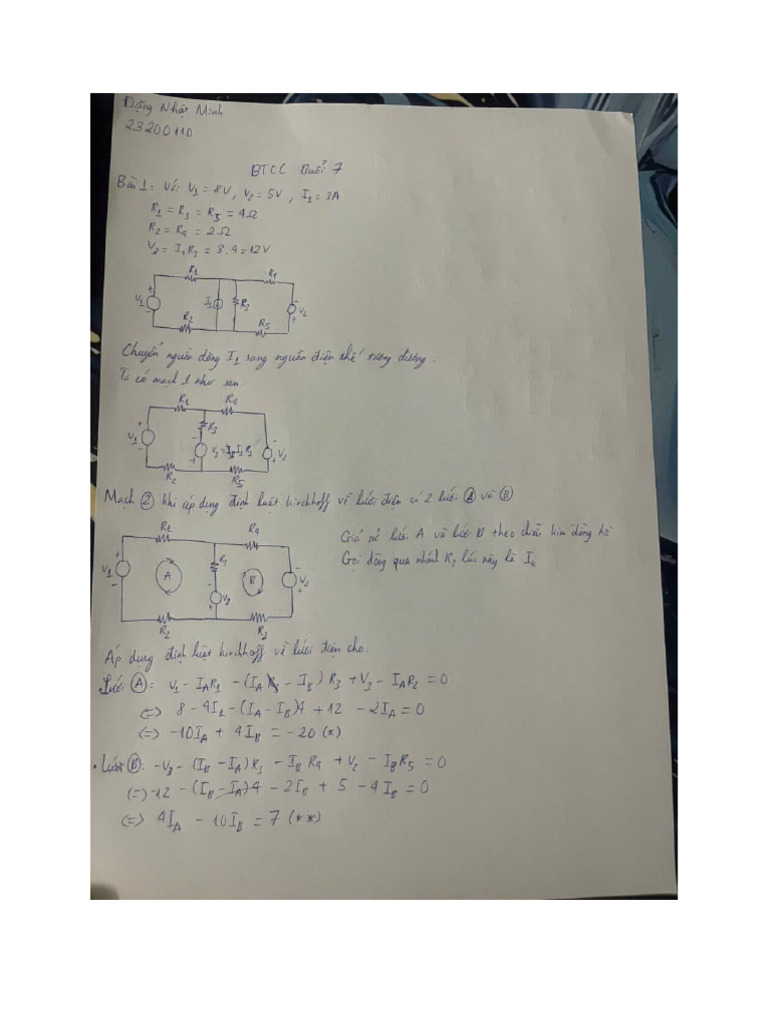 Đặng Nhật Minh
23200110
BTCC Buổi 7
Bài 1: Với V1 = 8V, V2 = 5V, I1 = 3A
R1 = R3 = R5 = 4Ω
R2 = R4 = 2Ω
V3 = I1R3 = 3.4 = 12V
R1 R4
+ V1 - I1 R3 - V2 +
R2 R5
Chuyển nguồn dòng I1 sang nguồn điện thế tương đương:
Ta có mạch 1 như sau:
R1 R4
R3
+ V1 - - V3 = R3 + - V2 +
R2 R5
Mạch 2 khi áp dụng định luật kirchhoff về lưới điện có 2 lưới A và B
R1 R4
Giả sử lưới A và lưới B theo chiều kim đồng hồ
Gọi dòng qua nhánh lúc này là
+ V1 - A B - V2 +
- V3 +
R2 R3
Áp dụng định luật kirchhoff về lưới điện cho:
• Lưới A: V1 - IAR1 - (IA - IB) R3 + V3 - IAR2 = 0
(=) 8 - 4I1 - (IA - IB)4 + 12 - 2IA = 0
(=) -10IA + 4IB = -20 (*)
• Lưới B: -V3 - (IB - IA)R3 - IBR4 + V2 - IBR5 = 0
(=) -12 - (IB - IA)4 - 2IB + 5 - 4IB = 0
(=) 4IA - 10IB = 7 (**)